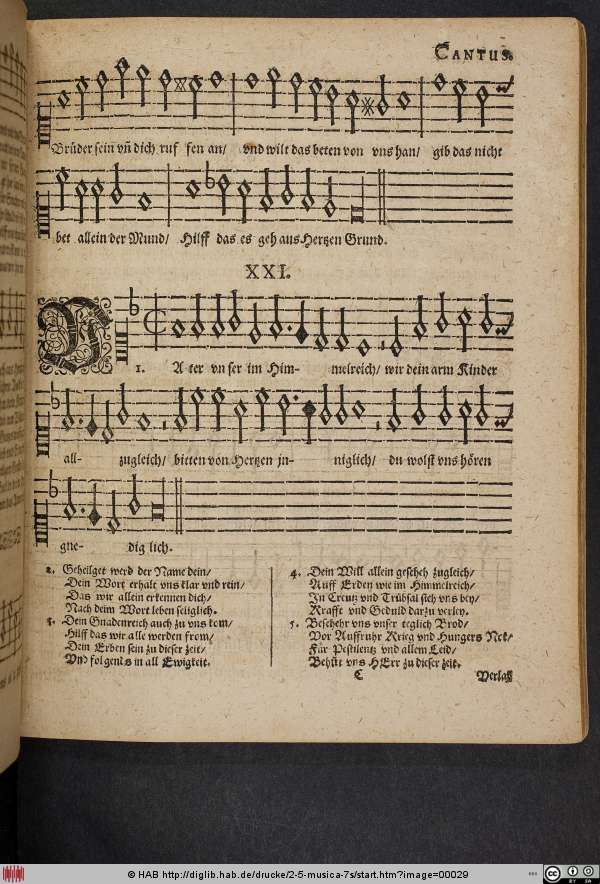 CANTUS.
Brüder sein vñ dich ruf fen an/ vnd wilt das beten von vns han/ gib das nicht
bet allein der Mund/ Hilff das es geh aus Hertzen Grund.
XXI.
1. VAter vnser im Him- melreich/ wir dein arm Kinder
all- zugleich/ bitten von Hertzen jn- niglich/ du wolst vns hören
gne- dig lich.
2. Geheilget werd der Name dein/
Dein Wort erhalt vns klar vnd rein/
Das wir allein erkennen dich/
Nach deim Wort leben seliglich.
3. Dein Gnadenreich auch zu vns kom/
Hilff das wir alle werden from/
Dein Erben sein zu dieser zeit/
Vnd folgents in all Ewigkeit.
4. Dein Will allein gescheh zugleich/
Auff Erden wie im Himmelreich/
In Creutz vnd Trübsal sieh vns bey/
Krafft vnd Gedult darzu verley.
5. Beschehr vns vnser teglich Brod/
Vor Auffruhr Krieg vnd Hungers Not/
Für Pestilentz vnd allem Leid/
Behüt vns HErr zu dieser zeit.
C Verlaß
© HAB http://diglib.hab.de/drucke/2-5-musica-7s/start.htm?image=00029
cc BY SA